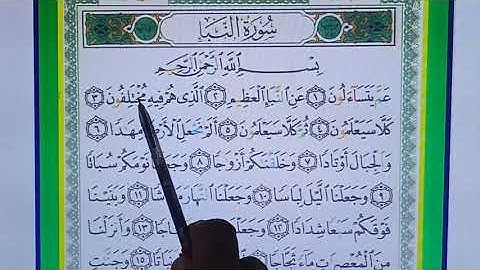 سُورَةُ النَّبَإِ
بِسْمِ اللَّهِ الرَّحْمَٰنِ الرَّحِيمِ
عَمَّ يَتَسَاءَلُونَ ١ عَنِ النَّبَإِ الْعَظِيمِ ٢ الَّذِي هُمْ فِيهِ مُخْتَلِفُونَ ٣
كَلَّا سَيَعْلَمُونَ ٤ ثُمَّ كَلَّا سَيَعْلَمُونَ ٥ أَلَمْ نَجْعَلِ الْأَرْضَ مِهَٰدًا ٦
وَالْجِبَالَ أَوْتَادًا ٧ وَخَلَقْنَٰكُمْ أَزْوَٰجًا ٨ وَجَعَلْنَا نَوْمَكُمْ سُبَاتًا
٩ وَجَعَلْنَا الَّيْلَ لِبَاسًا ١٠ وَجَعَلْنَا النَّهَارَ ١١ وَبَنَيْنَا
فَوْقَكُمْ سَبْعًا شِدَادًا ١٢ وَجَعَلْنَا ١٣ وَأَنزَلْنَا
مِنَ الْمُعْصِرَٰتِ مَاءً ثَجَّاجًا ١٤ ١٥ وَجَنَّٰتٍ